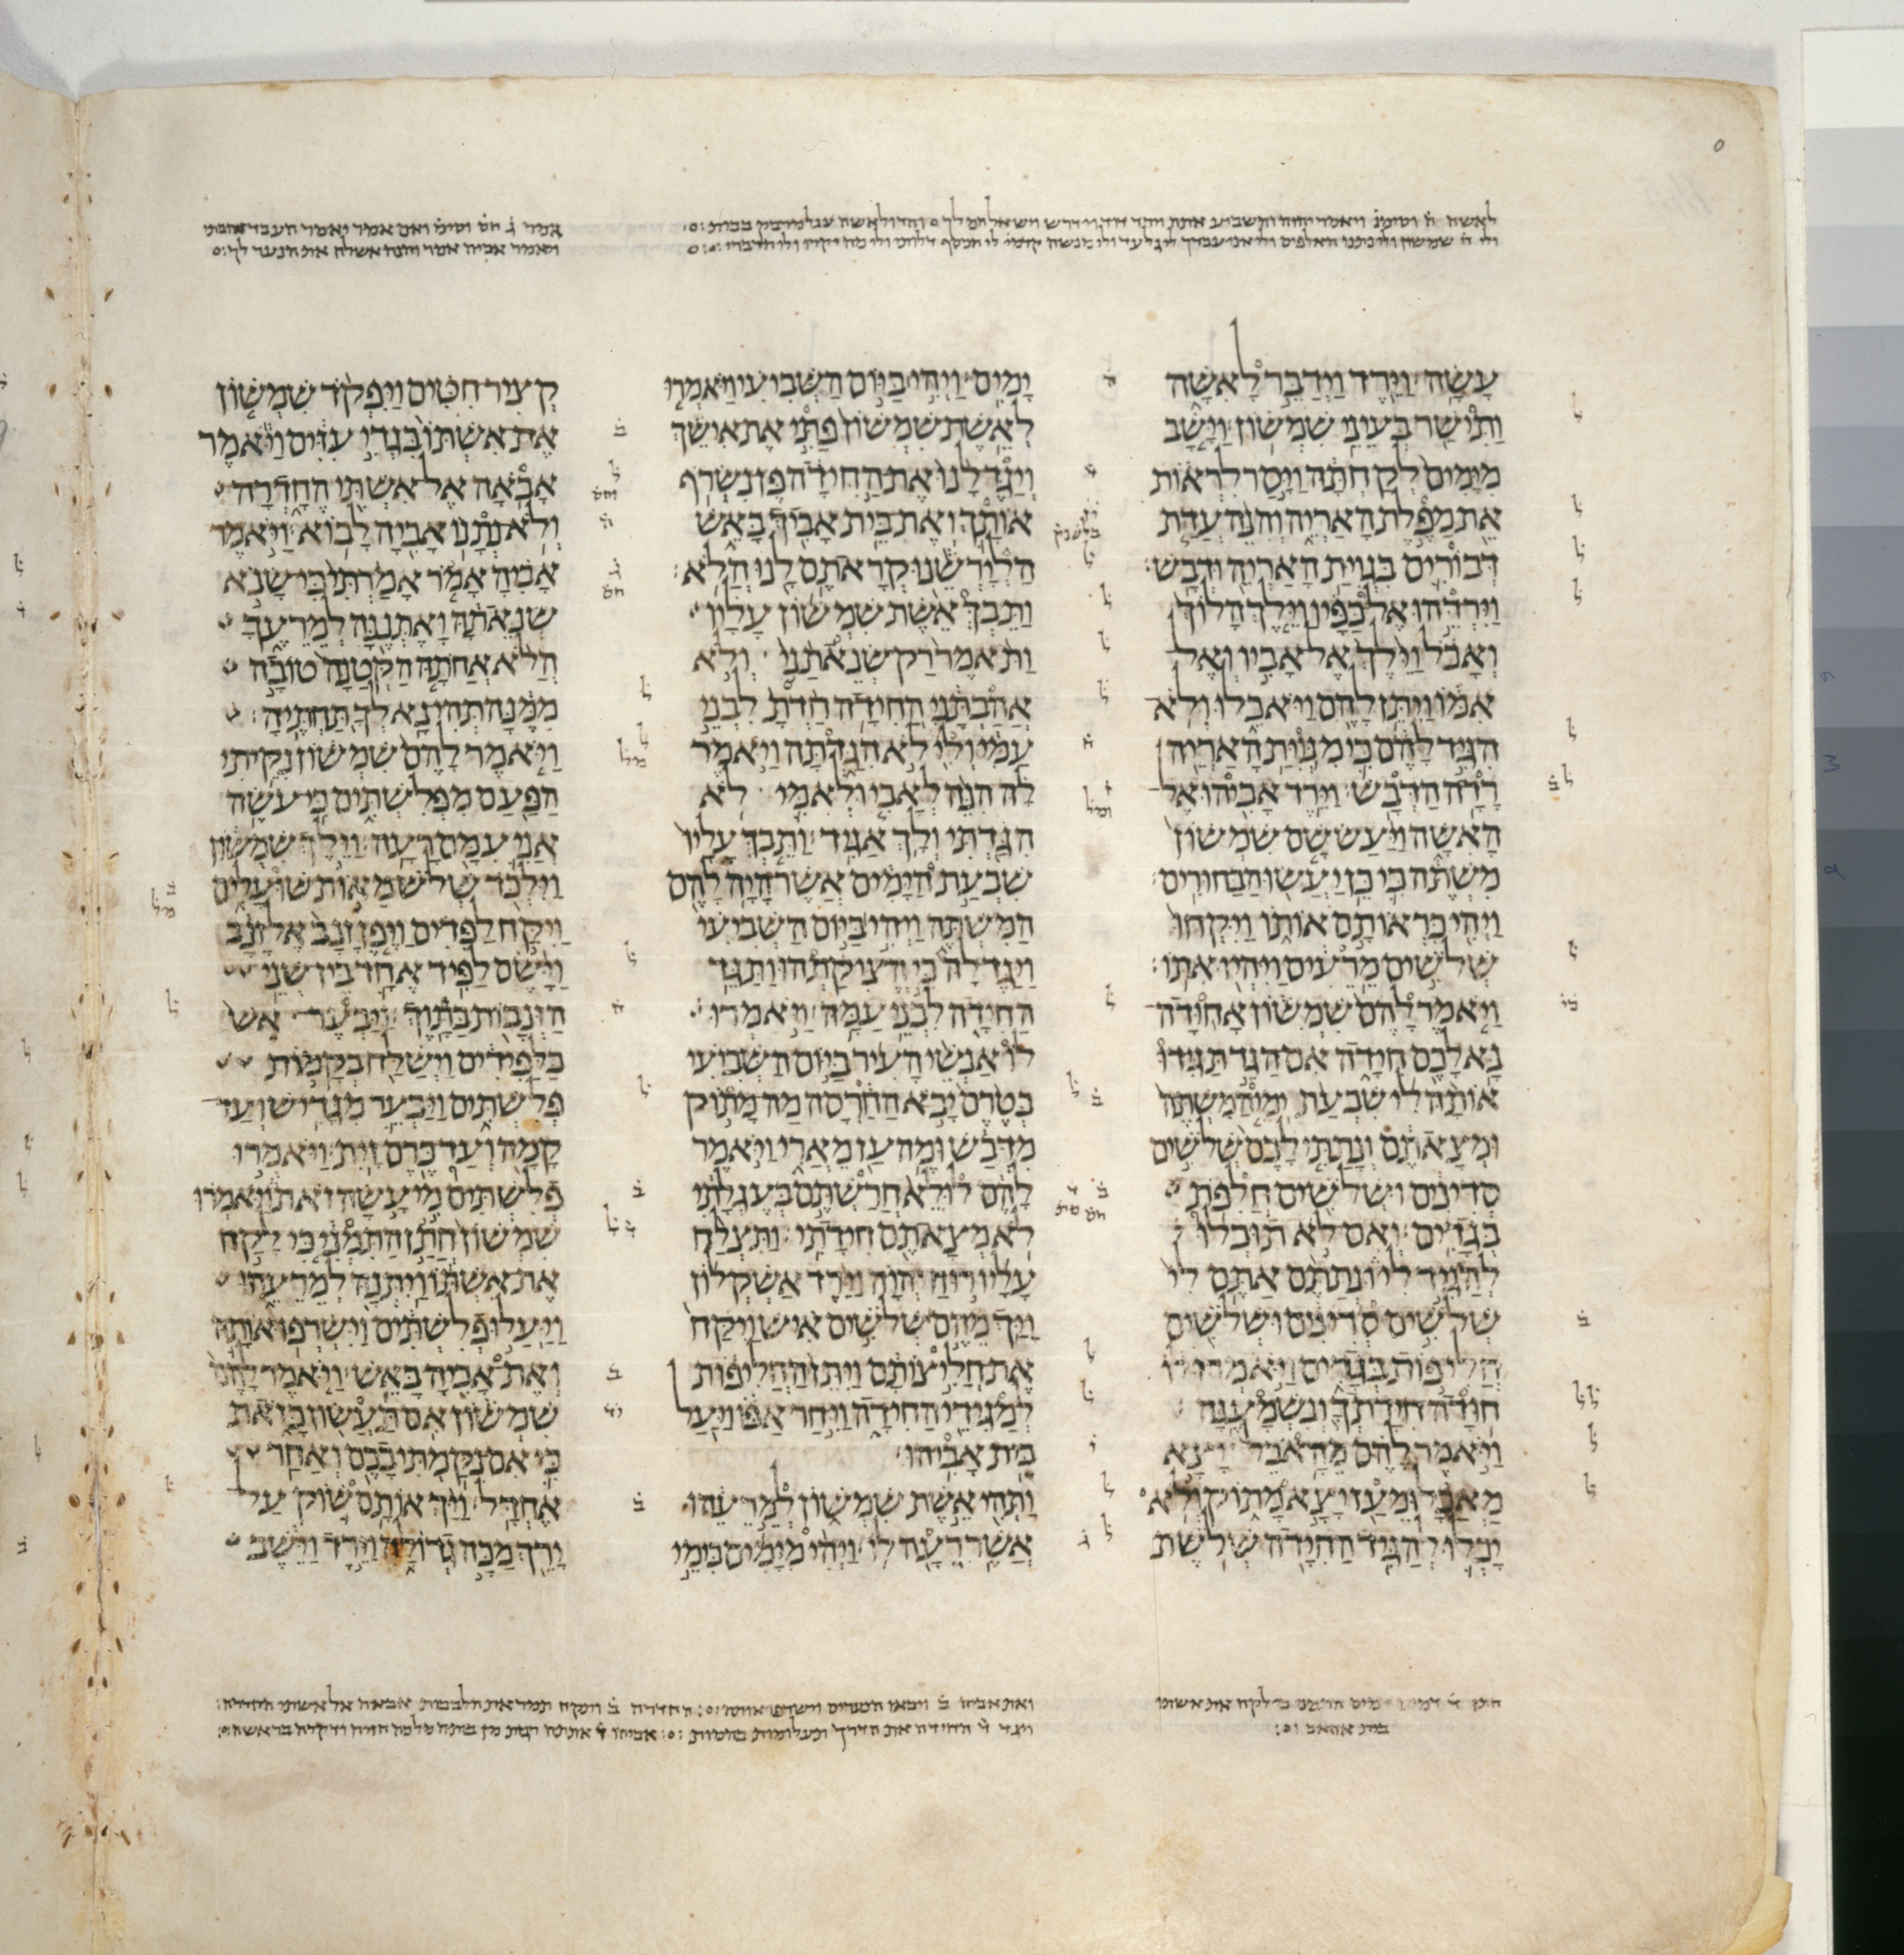 עָשָׂה׃ וַיֵּרֶד וַיְדַבֵּר לָאִשָּׁה
וַתִּישַׁר בְּעֵינֵי שִׁמְשׁוֹן׃ וַיָּשָׁב
מִיָּמִים לְקַחְתָּהּ וַיָּסַר לִרְאוֹת
אֵת מַפֶּלֶת הָאַרְיֵה וְהִנֵּה עֲדַת
דְּבוֹרִים בִּגְוִיַּת הָאַרְיֵה וּדְבָשׁ׃
וַיִּרְדֵּהוּ אֶל כַּפָּיו וַיֵּלֶךְ הָלוֹךְ
וְאָכֹל וַיֵּלֶךְ אֶל אָבִיו וְאֶל
אִמּוֹ וַיִּתֵּן לָהֶם וַיֹּאכֵלוּ וְלֹא
הִגִּיד לָהֶם כִּי מִגְּוִיַּת הָאַרְיֵה
רָדָה הַדְּבָשׁ׃ וַיֵּרֶד אָבִיהוּ אֶל
הָאִשָּׁה וַיַּעַשׂ שָׁם שִׁמְשׁוֹן
מִשְׁתֶּה כִּי כֵּן יַעֲשׂוּ הַבַּחוּרִים׃
וַיְהִי כִּרְאוֹתָם אוֹתוֹ וַיִּקְחוּ
שְׁלֹשִׁים מֵרֵעִים וַיִּהְיוּ אִתּוֹ׃
וַיֹּאמֶר לָהֶם שִׁמְשׁוֹן אָחוּדָה
נָּא לָכֶם חִידָה אִם הַגֵּד תַּגִּידוּ
אוֹתָהּ לִי שִׁבְעַת יְמֵי הַמִּשְׁתֶּה
וּמְצָאתֶם וְנָתַתִּי לָכֶם שְׁלֹשִׁים
סְדִינִים וּשְׁלֹשִׁים חֲלִפֹת
בְּגָדִים׃ וְאִם לֹא תוּכְלוּ
לְהַגִּיד לִי וּנְתַתֶּם אַתֶּם לִי
שְׁלֹשִׁים סְדִינִים וּשְׁלֹשִׁים
חֲלִיפוֹת בְּגָדִים וַיֹּאמְרוּ לוֹ
חוּדָה חִידָתְךָ וְנִשְׁמָעֶנָּה׃
וַיֹּאמֶר לָהֶם מֵהָאֹכֵל יָצָא
מַאֲכָל וּמֵעַז יָצָא מָתוֹק וְלֹא
יָכְלוּ לְהַגִּיד הַחִידָה שְׁלֹשֶׁת
יָמִים׃ וַיְהִי בַּיּוֹם הַשְּׁבִיעִי וַיֹּאמְרוּ
לְאֵשֶׁת שִׁמְשׁוֹן פַּתִּי אֶת אִישֵׁךְ
וְיַגֶּד לָנוּ אֶת הַחִידָה פֶּן נִשְׂרֹף
אוֹתָךְ וְאֶת בֵּית אָבִיךְ בָּאֵשׁ
הַלְיָרְשֵׁנוּ קְרָאתֶם לָנוּ הֲלֹא׃
וַתֵּבְךְּ אֵשֶׁת שִׁמְשׁוֹן עָלָיו
וַתֹּאמֶר רַק שְׂנֵאתַנִי וְלֹא
אֲהַבְתָּנִי הַחִידָה חַדְתָּ לִבְנֵי
עַמִּי וְלִי לֹא הִגַּדְתָּה וַיֹּאמֶר
לָהּ הִנֵּה לְאָבִי וּלְאִמִּי לֹא
הִגַּדְתִּי וְלָךְ אַגִּיד׃ וַתֵּבְךְּ עָלָיו
שִׁבְעַת הַיָּמִים אֲשֶׁר הָיָה לָהֶם
הַמִּשְׁתֶּה וַיְהִי בַּיּוֹם הַשְּׁבִיעִי
וַיַּגֶּד לָהּ כִּי הֱצִיקַתְהוּ וַתַּגֵּד
הַחִידָה לִבְנֵי עַמָּהּ׃ וַיֹּאמְרוּ
לוֹ אַנְשֵׁי הָעִיר בַּיּוֹם הַשְּׁבִיעִי
בְּטֶרֶם יָבֹא הַחַרְסָה מַה מָּתוֹק
מִדְּבַשׁ וּמֶה עַז מֵאֲרִי וַיֹּאמֶר
לָהֶם לוּלֵא חֲרַשְׁתֶּם בְּעֶגְלָתִי
לֹא מְצָאתֶם חִידָתִי׃ וַתִּצְלַח
עָלָיו רוּחַ יְהוָה וַיֵּרֶד אַשְׁקְלוֹן
וַיַּךְ מֵהֶם שְׁלֹשִׁים אִישׁ וַיִּקַּח
אֶת חֲלִיצוֹתָם וַיִּתֵּן הַחֲלִיפוֹת
לְמַגִּידֵי הַחִידָה וַיִּחַר אַפּוֹ וַיַּעַל
בֵּית אָבִיהוּ׃
וַתְּהִי אֵשֶׁת שִׁמְשׁוֹן לְמֵרֵעֵהוּ
אֲשֶׁר רֵעָה לוֹ׃ וַיְהִי מִיָּמִים בִּימֵי
קְצִיר חִטִּים וַיִּפְקֹד שִׁמְשׁוֹן
אֶת אִשְׁתּוֹ בִּגְדִי עִזִּים וַיֹּאמֶר
אָבֹאָה אֶל אִשְׁתִּי הֶחָדְרָה
וְלֹא נְתָנוֹ אָבִיהָ לָבוֹא׃ וַיֹּאמֶר
אָבִיהָ אָמֹר אָמַרְתִּי כִּי שָׂנֹא
שְׂנֵאתָהּ וָאֶתְּנֶנָּה לְמֵרֵעֶךָ
הֲלֹא אֲחֹתָהּ הַקְּטַנָּה טוֹבָה
מִמֶּנָּה תְּהִי נָא לְךָ תַּחְתֶּיהָ׃
וַיֹּאמֶר לָהֶם שִׁמְשׁוֹן נִקֵּיתִי
הַפַּעַם מִפְּלִשְׁתִּים כִּי עֹשֶׂה
אֲנִי עִמָּם רָעָה׃ וַיֵּלֶךְ שִׁמְשׁוֹן
וַיִּלְכֹּד שְׁלֹשׁ מֵאוֹת שׁוּעָלִים
וַיִּקַּח לַפִּדִים וַיֶּפֶן זָנָב אֶל זָנָב
וַיָּשֶׂם לַפִּיד אֶחָד בֵּין שְׁנֵי
הַזְּנָבוֹת בַּתָּוֶךְ׃ וַיַּבְעֶר אֵשׁ
בַּלַּפִּידִים וַיְשַׁלַּח בְּקָמוֹת
פְּלִשְׁתִּים וַיַּבְעֵר מִגָּדִישׁ וְעַד
קָמָה וְעַד כֶּרֶם זָיִת׃ וַיֹּאמְרוּ
פְלִשְׁתִּים מִי עָשָׂה זֹאת וַיֹּאמְרוּ
שִׁמְשׁוֹן חֲתַן הַתִּמְנִי כִּי לָקַח
אֶת אִשְׁתּוֹ וַיִּתְּנָהּ לְמֵרֵעֵהוּ
וַיַּעֲלוּ פְלִשְׁתִּים וַיִּשְׂרְפוּ אוֹתָהּ
וְאֶת אָבִיהָ בָּאֵשׁ׃ וַיֹּאמֶר לָהֶם
שִׁמְשׁוֹן אִם תַּעֲשׂוּן כָּזֹאת
כִּי אִם נִקַּמְתִּי בָכֶם וְאַחַר
אֶחְדָּל׃ וַיַּךְ אוֹתָם שׁוֹק עַל
יָרֵךְ מַכָּה גְדוֹלָה וַיֵּרֶד וַיֵּשֶׁב